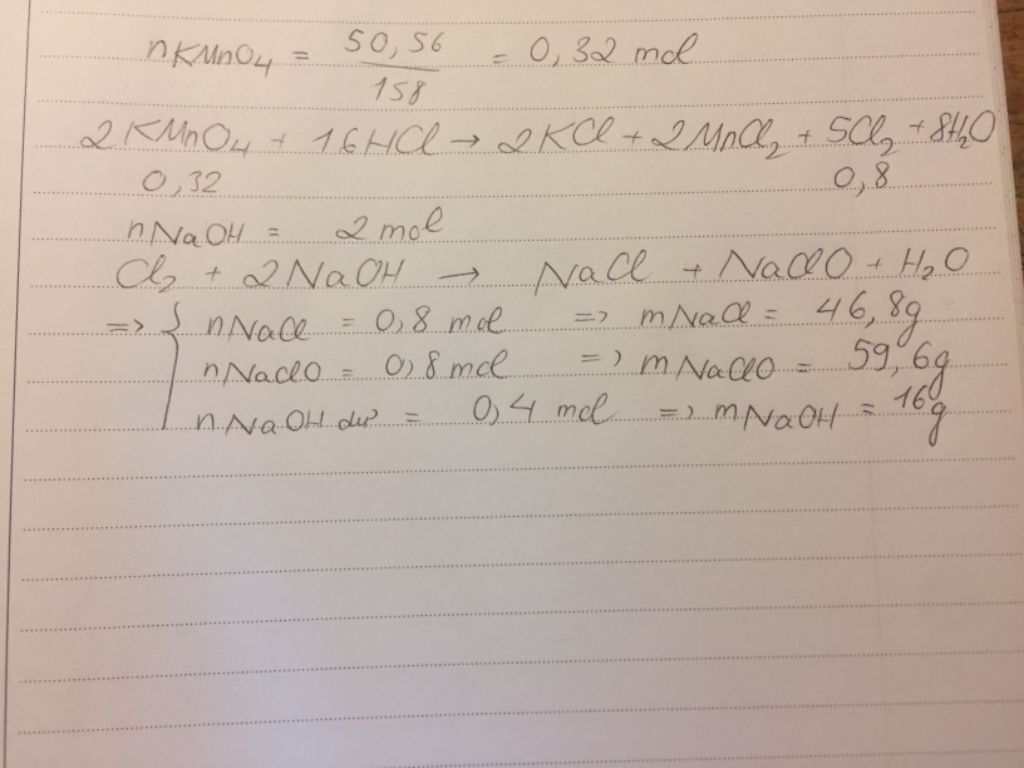 nKMnO4 = 50,56 / 158 = 0,32 mol
2KMnO4 + 16HCl → 2KCl + 2MnCl2 + 5Cl2 + 8H2O
0,32 0,8
nNaOH = 2 mol
Cl2 + 2NaOH → NaCl + NaClO + H2O
=> { nNaCl = 0,8 mol => mNaCl = 46,8g
nNaClO = 0,8 mol => mNaClO = 59,6g
nNaOH dư = 0,4 mol => mNaOH = 16g